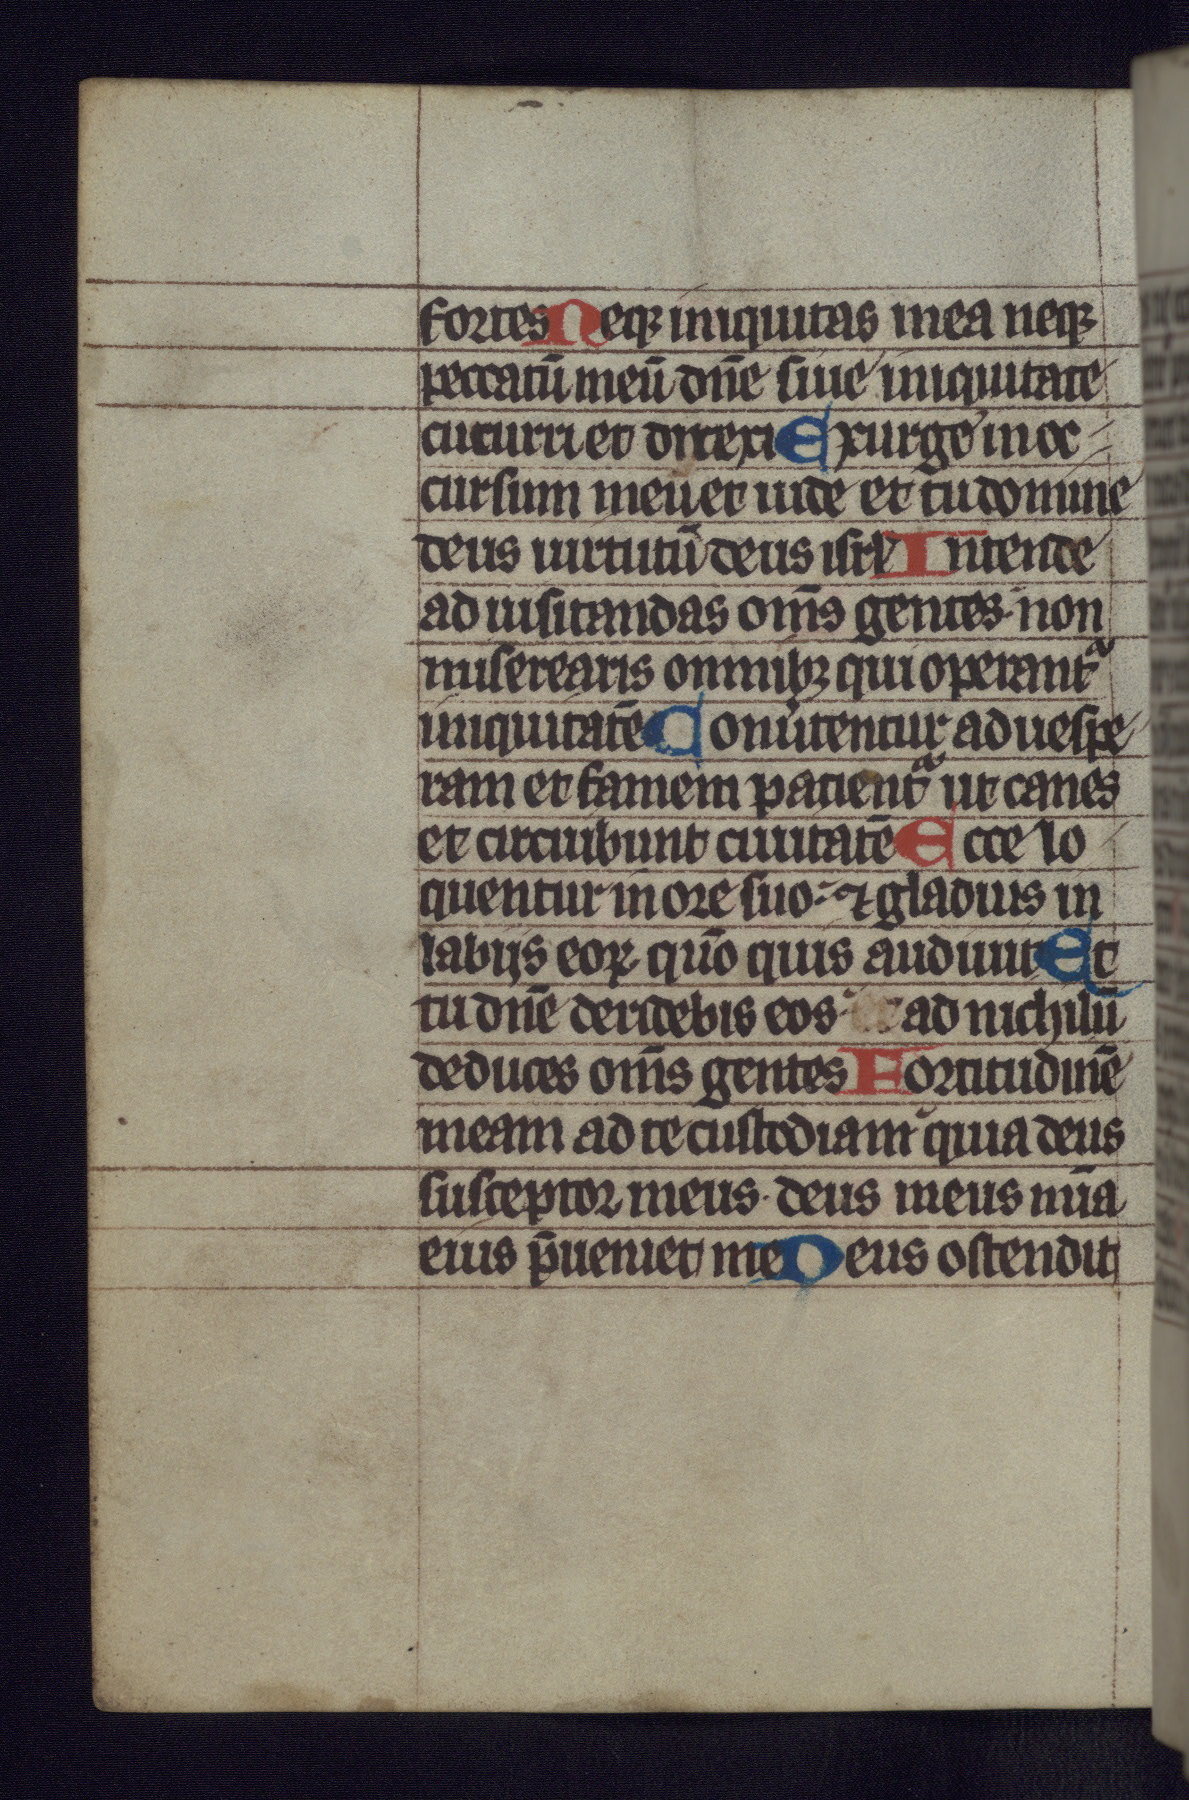 fortes Neqꝫ iniquitas mea neqꝫ
peccatū meū dn̄e siue iniquitate
cucurri et direxi Exurge in oc
cursum meū et uide et tu domine
deus uirtutū deus isrl̄ Intende
ad uisitandas om̄s gentes non
miserearis omnibꝫ qui operantᵃ
iniquitatē Conu̾tentur ad uespe
ram et famem patientᵃ ut canes
et circuibunt ciuitatē Ecce lo
quentur in ore suo ⁊ gladius in
labijs eoꝝ qm̄ quis audiuit Et
tu dn̄e deridebis eos ad nichilū
deduces om̄s gentes Fortitudinē
meam ad te custodiam quia deus
susceptor meus · deus meus mīa
eius p̄ueniet me Deus ostendit